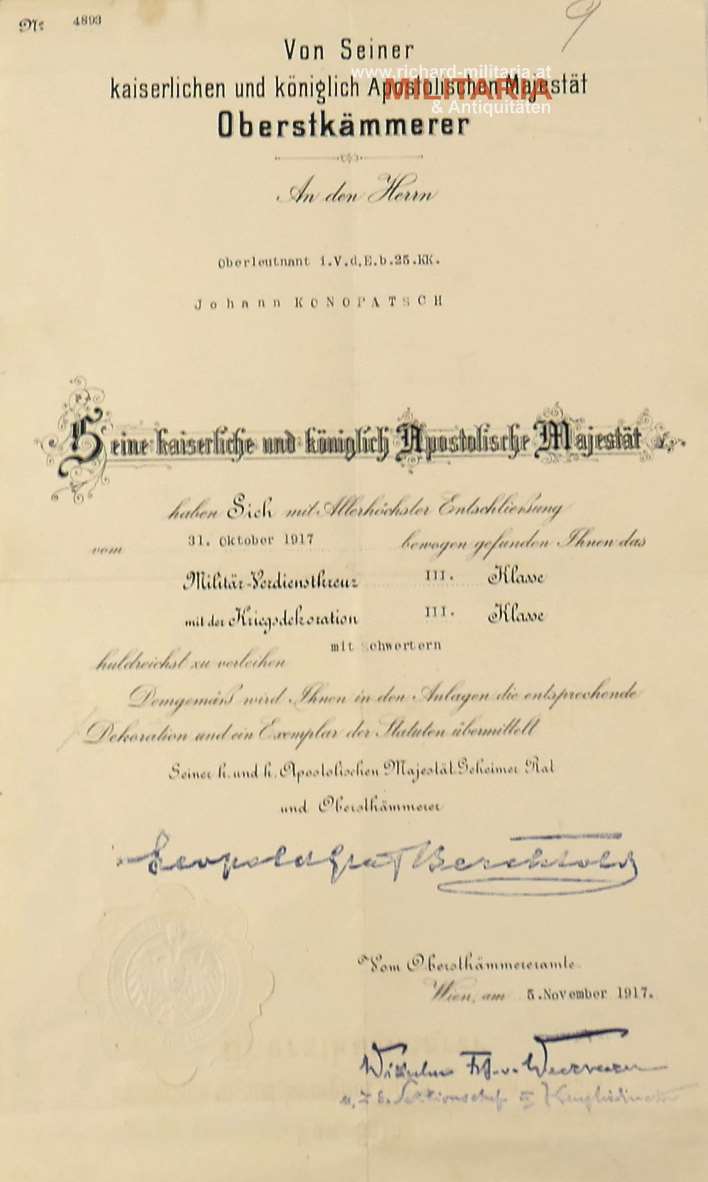 Nr. 4893
Von Seiner
kaiserlichen und königlich Apostolischen Majestät
www.richard-militaria.at
MILITARIA
& Antiquitäten
Oberstkämmerer
An den Herrn
Oberleutnant i.V.d.E.b.25.KK.
Johann KONOPATSCH
Seine kaiserliche und königlich Apostolische Majestät
haben Sich mit Allerhöchster Entschließung
vom 31. Oktober 1917 bewogen gefunden Ihnen das
Militär-Verdienstkreuz III. Klasse
mit der Kriegsdekoration III. Klasse
mit Schwertern
huldreichst zu verleihen
Demgemäß wird Ihnen in den Anlagen die entsprechende
Dekoration und ein Exemplar der Statuten übermittelt
Seiner k. und k. Apostolischen Majestät Geheimer Rat
und Oberstkämmerer
Leopold Graf Berchtold
Vom Oberstkämmereramte
Wien, am 5. November 1917.
Wilhelm Fh. v.